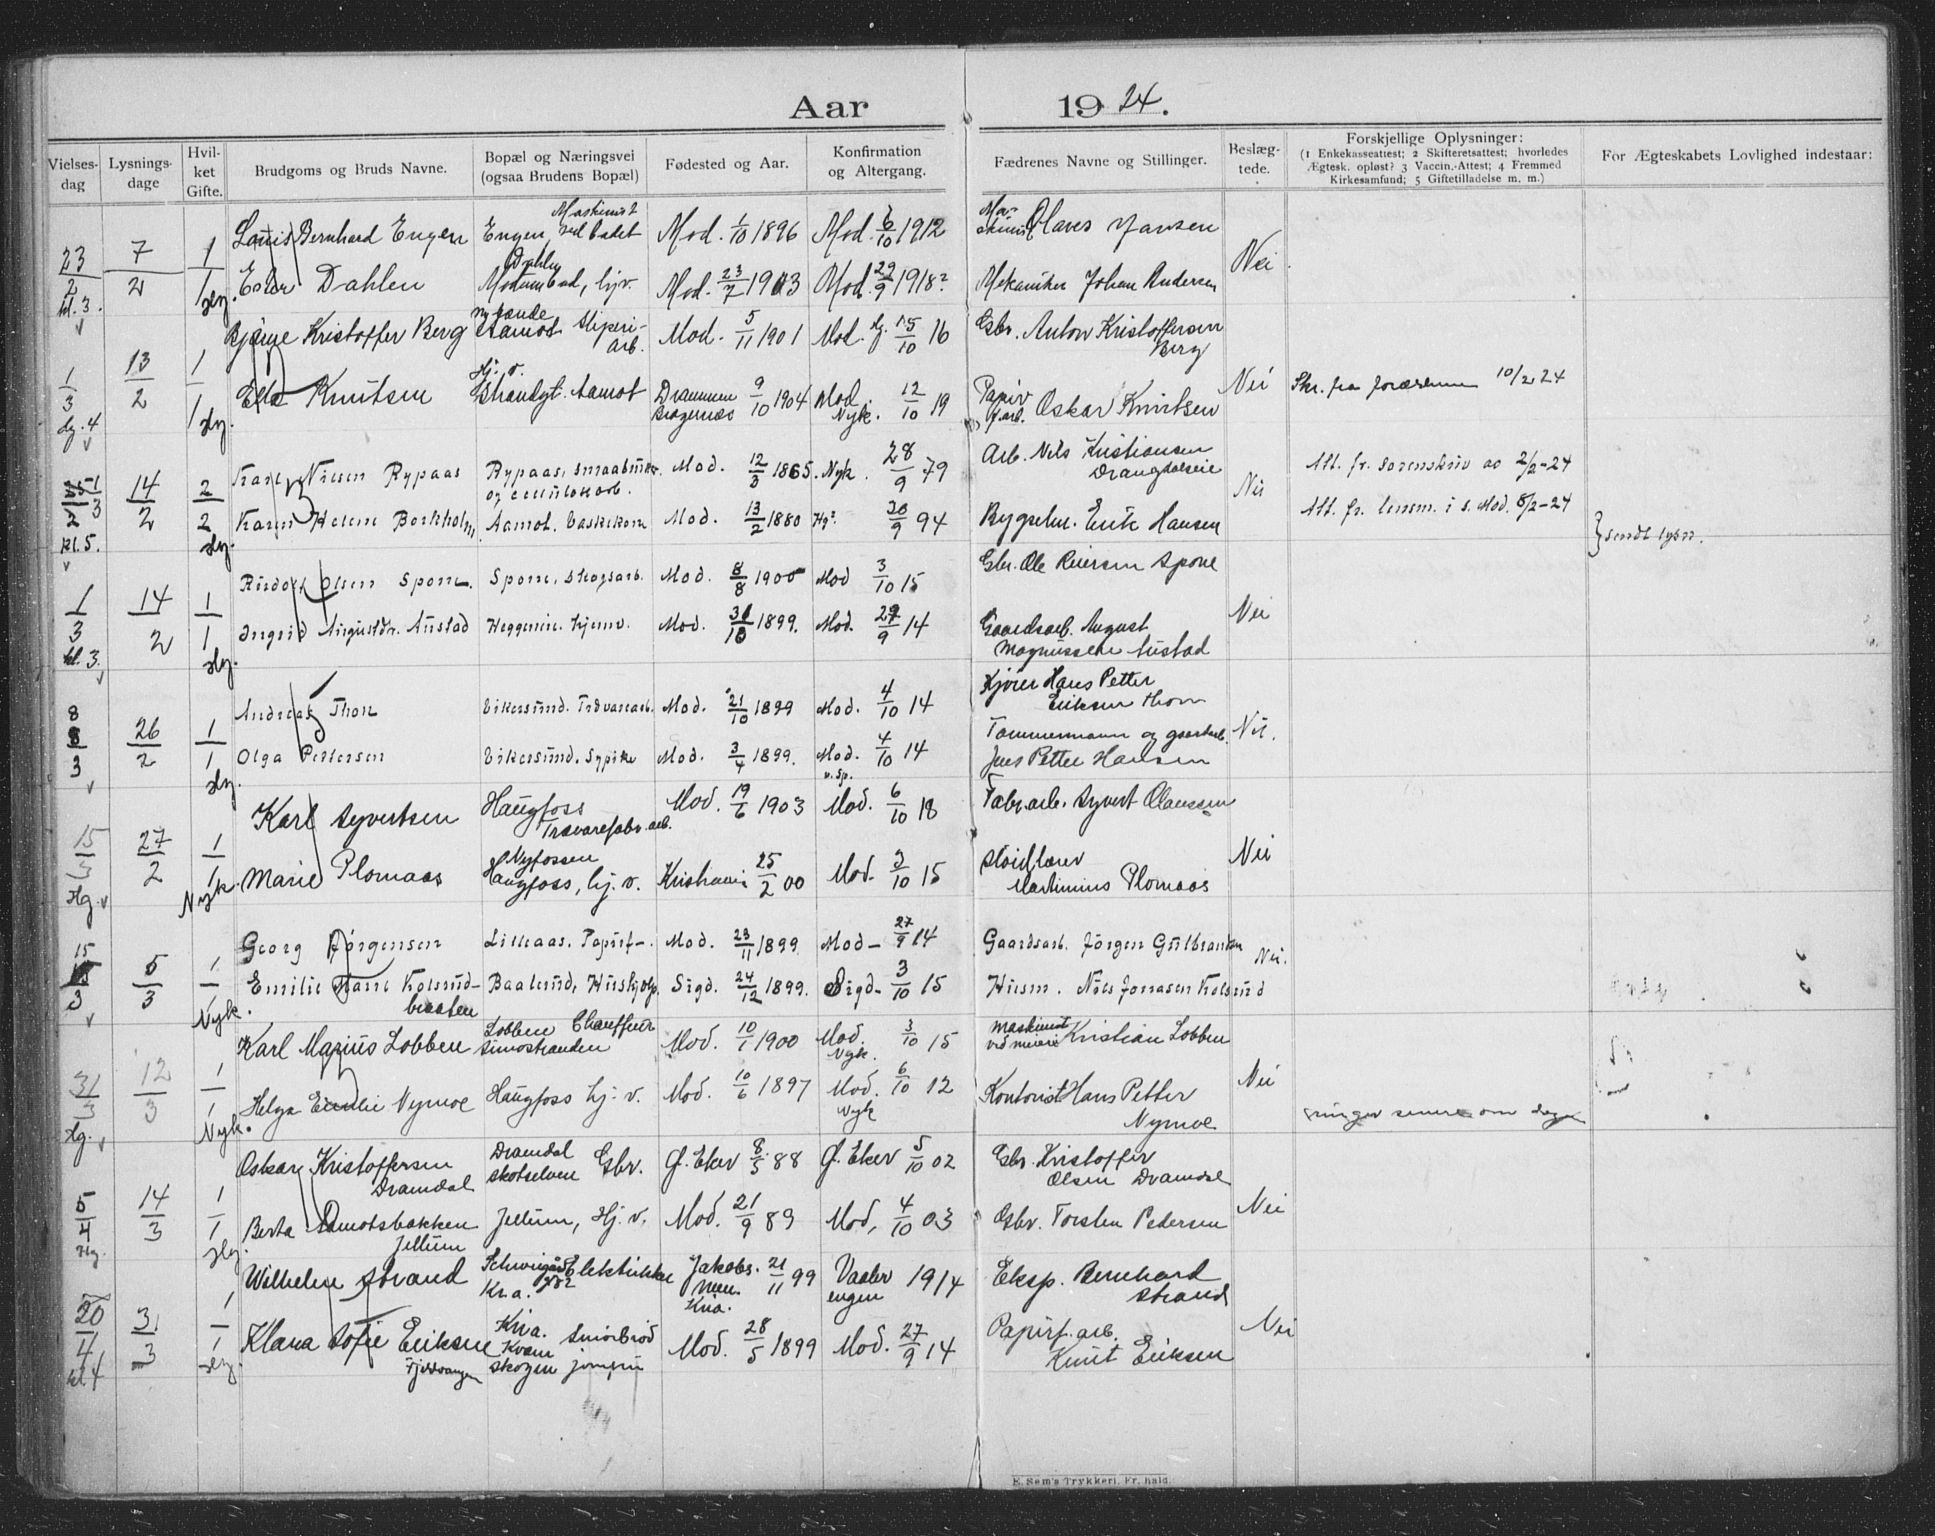 Aar 1924.
Vielses-dag
Lysnings-dage
Hvil-ket Gifte.
Brudgoms og Bruds Navne.
Bopæl og Næringsvei (ogsaa Brudens Bopæl)
Fødested og Aar.
Konfirmation og Altergang.
Fædrenes Navne og Stillinger.
Beslæg-tede.
Forskjellige Oplysninger:
(1 Enkekasseattest; 2 Skifteretsattest; hvorledes Ægtesk. opløst? 3 Vaccin.-Attest; 4 Fremmed Kirkesamfund; 5 Giftetilladelse m. m.)
For Ægteskabets Lovlighed indestaar:
Louis Bernhard Engen Engen Maskinist ved badet Mod. 1/10 1896 Mod. 6/10 1912 Olaves Jansen
23/2 kl. 3. 7/2 1/1
Ester Dahlen Dahlen Modumbad, hjv. Mod. 23/7 1903 Mod. 29/9 1918? Mekaniker Johan Andersen Nei
Kristoffer Berg Aamot Sliperi-arb. Mod. 5/11 1901 Mod. 15/10 16 Gbr. Anton Kristoffersen Berg
1/3 13/2 1/1
Ella Knutsen Hj. v. Strandgt. Aamot Drammen Bragernæs 9/10 1904 Mod. Nyk. 12/10 19 Papirf.arb. Oskar Knutsen Nei Skr. fra forældrene 10/2 24
Karl Nilsen Rypaas Rypaas, smaabruker og cellulosearb. Mod. 12/3 1865. Nyk. 28/9 79 Arb. Nils Kristiansen Drangdalseie
14/2 2/2 kl. 5.
Att. fr. sorenskriv 2/2-24
Karen Helene Borkholm, Aamot. Mod. 13/2 1880 Hg? 30/9 94 Bygselm. Erik Hansen Nei
Att. fr. lensm. i s. Mod. 8/2-24
sendt lysn.
Rudolf Olsen Spone. Spone, skogsarb. Mod. 8/8 1900 Mod 3/10 15 Gbr. Ole Reiersen Spone
1/3 kl. 3. 14/2 1/1
Ingrid Augustdr. Austad Heggenie, hjemv. Mod. 1899. Mod. 29/9 14 Gaardsarb. August Magnussen Austad Nei
Andreas Thon Vikersund. Trævarearb. Mod. 21/10 1899 Mod. 4/10 14 Kjører Hans Petter Eriksen Thon
8/3 26/2 1/1
Olga Pettersen Vikersund. Sypike Mod. 3/4 1899. Mod. 4/10 14 Tømmermann og gaardarb. Jens Petter Hansen Nei.
Karl Syvertsen Haugfoss Trævarefabr. arb. Mod. 19/6 1903 Mod. 6/10 18 Fabr.arb. Syvert Olaussen
15/3 Hg. 27/2 1/1 Nyk.
Marie Plomaas Nyfossen Haugfoss, hj. v. Kristiania 25/2 00 Mod. 3/10 15 Martinius Plomaas Nei
Georg Jørgensen Lilleaas. Papirf-. Mod. 23/11 1899. Mod- 27/9 14 Gaardsarb. Jörgen Gulbransen
15/3 5/3 1/1 Nyk.
Emilie Kolsrud-braaten Baalsrud, Hushjelp. Sigd. 24/12 1899. Sigd- 3/10 15 Husm. Nils Jonasen Kolsrud Nei.
Karl Magnus Lobben Lobben Chauffeur Simostranden Mod. 10/1 1900 Mod. Nyk. 3/10 15 Maskinist ved meieri Kristian Lobben
31/3 Hg. 12/3 1/1 Nyk.
Helga Emilie Nymoe Haugfoss hj. v. Mod. 10/6 1897 Mod. Nyk 6/10 12 Kontorist Hans Petter Nymoe Nei
ringer senere om dagen
Oskar Kristoffersen Dramdal Dramdal Skotselven Gbr. Ø. Eker 8/5 88 Ø. Eker 5/10 02 Gbr. Kristoffer Olsen Dramdal
5/4 14/3 1/1
Berta Aamotsbakken Jellum Jellum, Hj. v. Mod. 21/9 89 Mod, 4/10 03 Gbr. Torsten Pedersen Nei
Wilhelm Strand Kr.a. Jakobs. Kria. 21/11 99 Vaaler engen 1914 Eksp. Bernhard Strand
20/4 kl 4 31/3 1/1
Klara Sofie Eriksen Kria. Smørbrød jomfru Mod. 28/5 1899 Mod. 27/9 14 Papirf. arb. Knut Eriksen Nei
E. Sem's Trykkeri, Fr.hald.